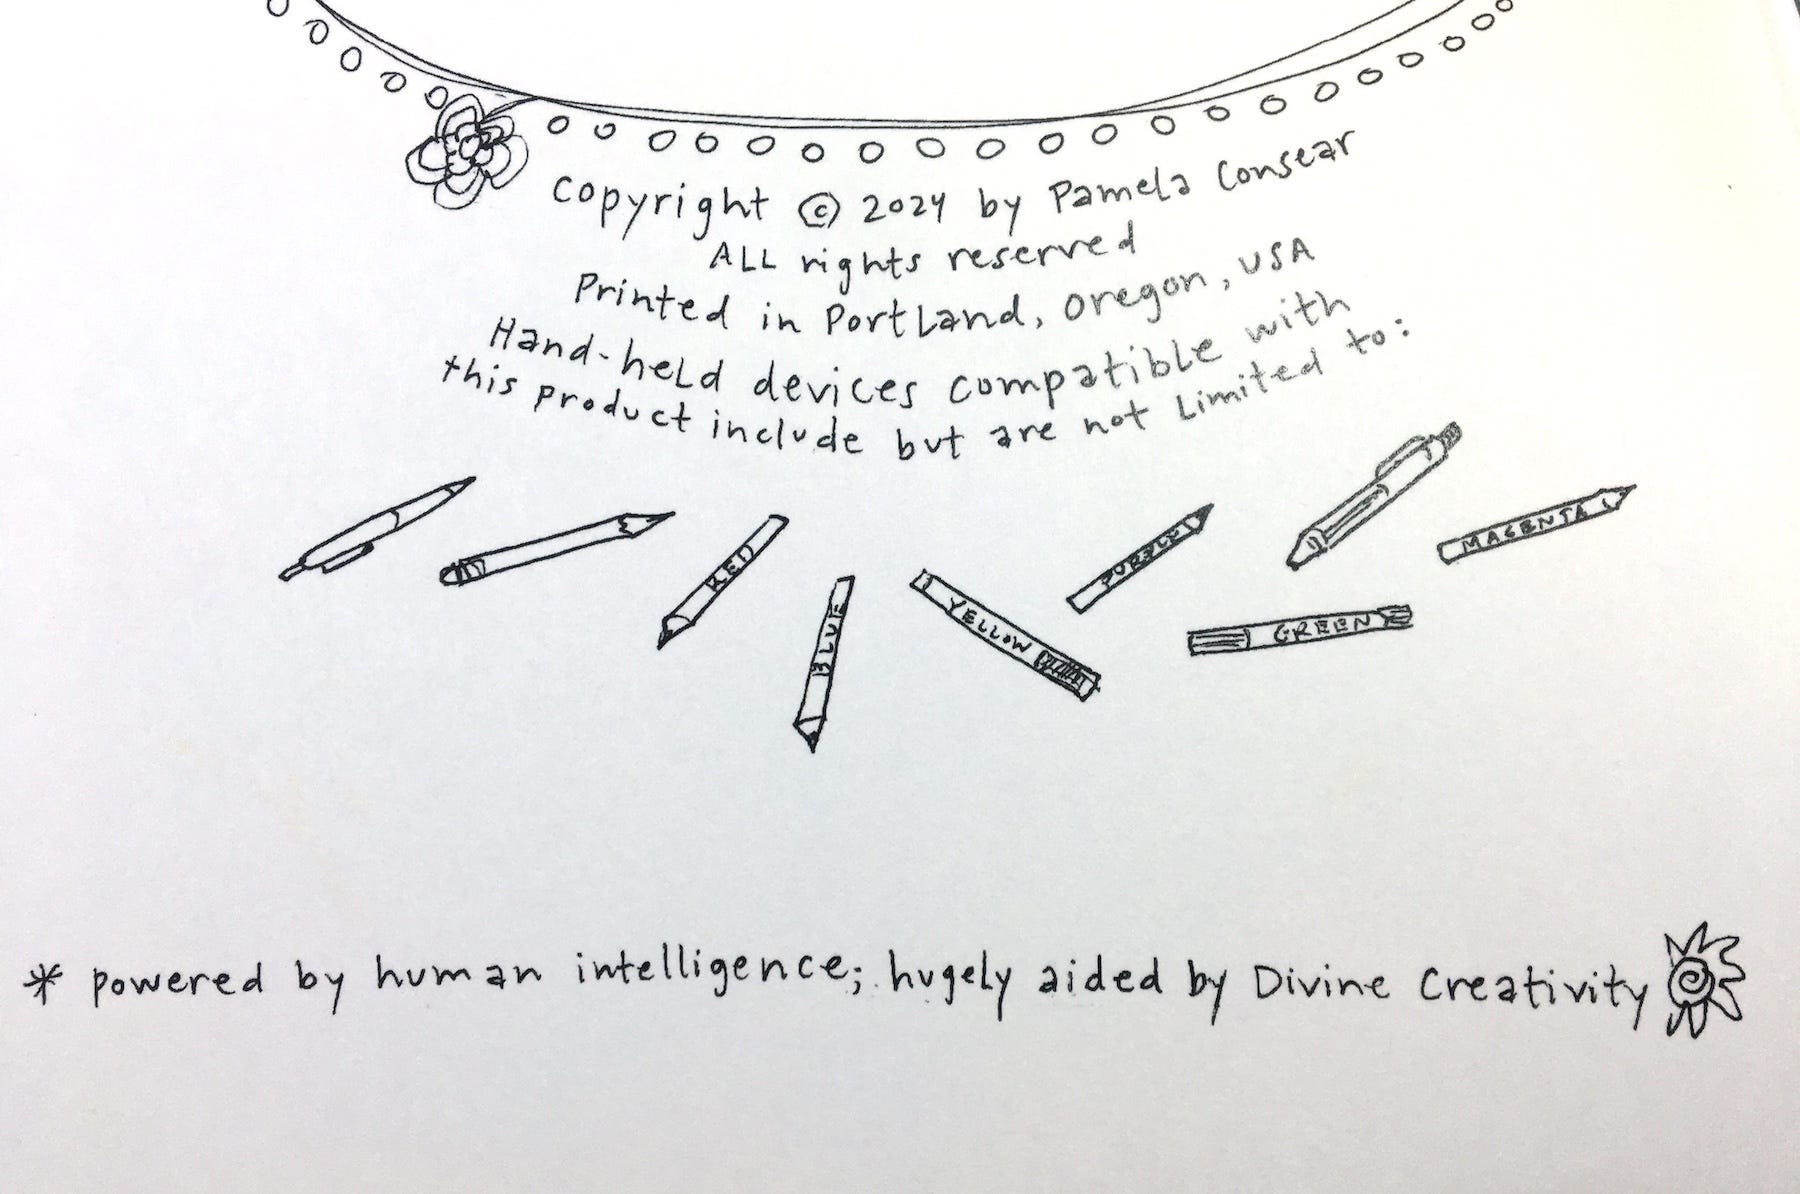 copyright © 2024 by Pamela Consear
ALL rights reserved
Printed in Portland, Oregon, USA
Hand-held devices compatible with
this product include but are not Limited to:
RED
BLUE
YELLOW
PURPLE
GREEN
MAGENTA
* powered by human intelligence; hugely aided by Divine Creativity